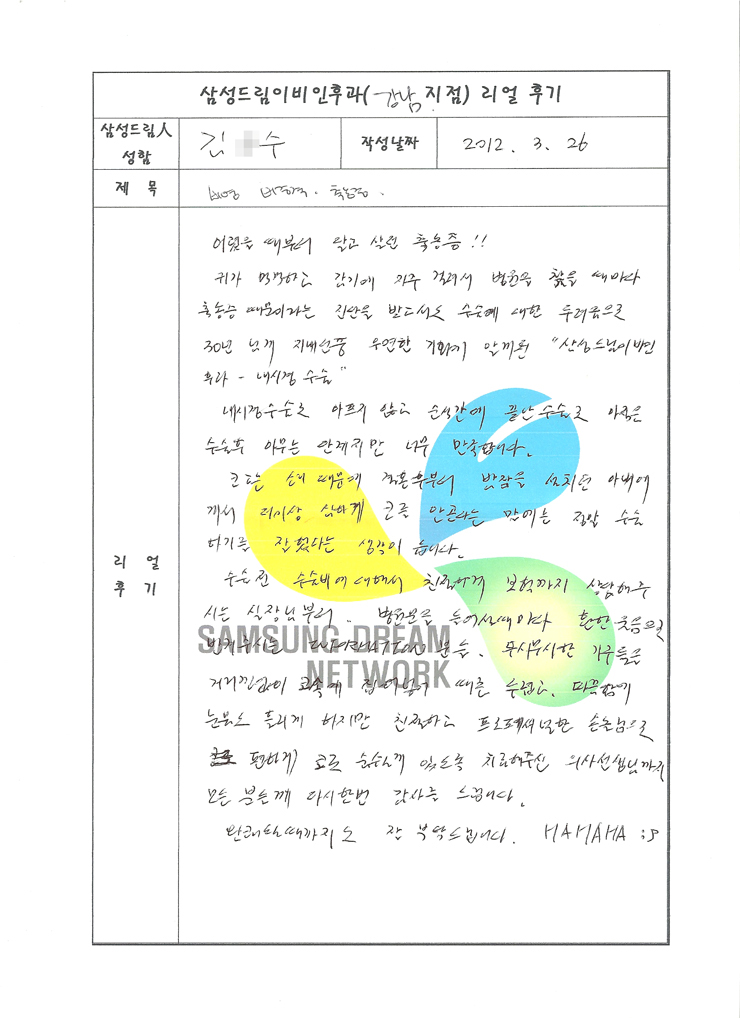 삼성드림이비인후과(강남 지점) 리얼 후기
삼성드림人 성함
김 수
작성날짜
2012. 3. 26
제 목
비염 축농증.
리 얼 후 기
어렸을 때부터 앓고 살던 축농증!!
귀가 멍멍하고 감기에 자주 걸려서 병원을 찾을 때마다
축농증 때문이라는 진단을 받으면서도 수술에 대한 두려움으로
30년 넘게 지내던중 우연한 기회에 알게된 "삼성드림이비인
후과 - 내시경 수술"
내시경수술로 아프지 않고 순식간에 끝난 수술로 아직은
수술후 아무는 단계지만 너무 만족합니다.
코고는 소리 때문에 결혼후부터 밤잠을 설치던 아내에
게서 더이상 심하게 코를 안곤다는 말에는 정말 수술
하기를 잘했다는 생각이 듭니다.
수술전 수술비에 대해서 친절하게 보험까지 상담해주
시는 실장님부터, 병원문을 들어설때마다 환한 웃음으로
반겨주시는 분들, 무시무시한 기구들을
거리낌없이 콧속에 집어넣기 때론 두렵고, 따끔함에
눈물도 흘리게 하지만 친절하고 프로페셔널한 손놀림으로
편하게 코로 숨쉬게 있도록 치료해주신 의사선생님까지
모든 분들께 다시한번 감사를 드립니다.
완쾌될때까지도 잘 부탁드립니다. HAHAHA :P
SAMSUNG DREAM
NETWORK